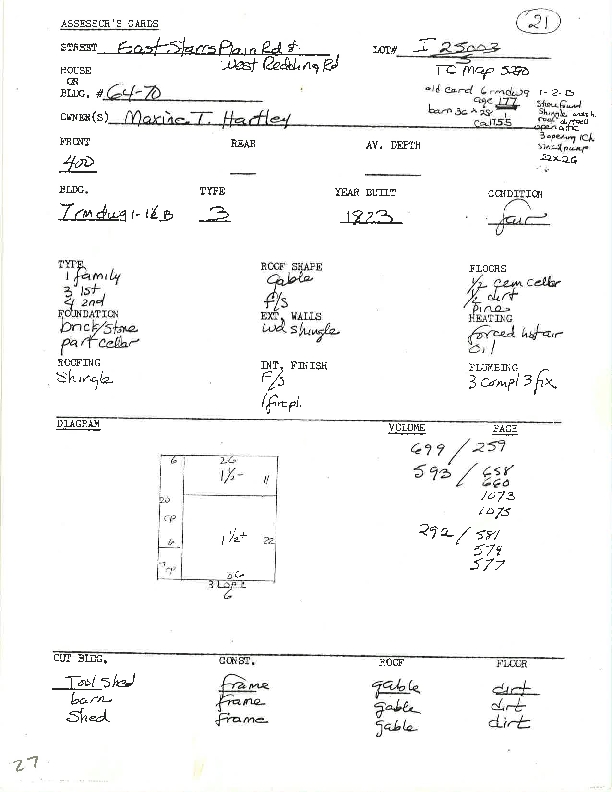 21
ASSESSOR'S CARDS
STREET East Starrs Plain Rd &
West Redding Rd
LOT# I 25003
5
TC Map 5270
HOUSE
OR
BLDG. # 64-70
old card 6 rm dwg 1-2-B
age 177
barn 36 x 28
ca 1755
Stone found
Shingle
open attic
22 x 26
OWNER(S) Maxine T. Hartley
FRONT REAR AV. DEPTH
400
BLDG. TYPE YEAR BUILT CONDITION
7 rm dwg 1-1½ B 3 1823 fair
TYPE ROOF SHAPE FLOORS
1 family Gable ½ cem cellar
3 1st f/s ½ dirt
4 2nd pine
FOUNDATION EXT. WALLS HEATING
brick/stone wd shingle forced hot air
part cellar oil
ROOFING INT. FINISH PLUMBING
Shingle F/s 3 compl 3 fix
1 firepl.
DIAGRAM VOLUME PAGE
699 / 259
593 / 658
660
1073
1075
292 / 581
579
577
6 26
1½- 11
20
CP
1½+ 22
6
26
6
OUT BLDG. CONST. ROOF FLOOR
Tool Shed frame gable dirt
barn frame gable dirt
Shed frame gable dirt
27